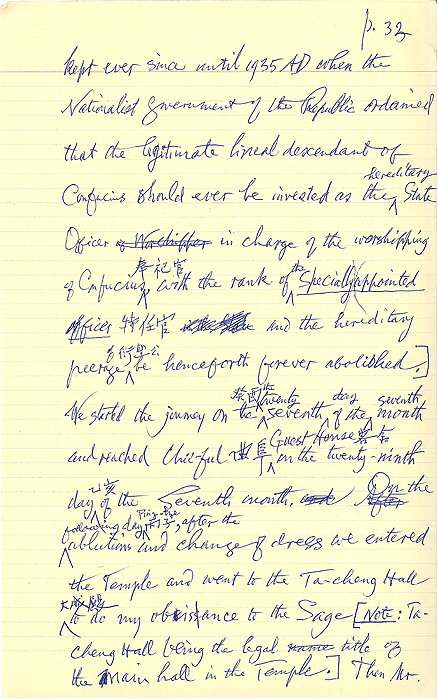 p. 32
kept ever since until 1935 AD when the
Nationalist Government of the Republic ordained
that the legitimate lineal descendant of
Confucius should ever be invested as the hereditary State
Officer of Worshipper in charge of the worshipping
of Confucius 奉祀官, with the rank of the Specially appointed
officer 特任官 and the hereditary
peerage 衍聖公 be henceforth forever abolished.]
We started the journey on the twenty seventh day of the seventh month
and reached Chü-fu 曲阜 Guest House on the twenty-ninth
day 乙亥 of the Seventh month. On the After
following day Ping-tze 丙子, after the
ablutions and change of dress we entered
the Temple and went to the Ta-cheng Hall
大成殿 to do my obeisance to the Sage [Note: Ta-
cheng Hall being the legal name title of
the main hall in the Temple.] Then Mr.